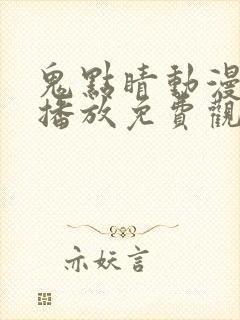 鬼點睛動漫
播放免費觀
亦妖言